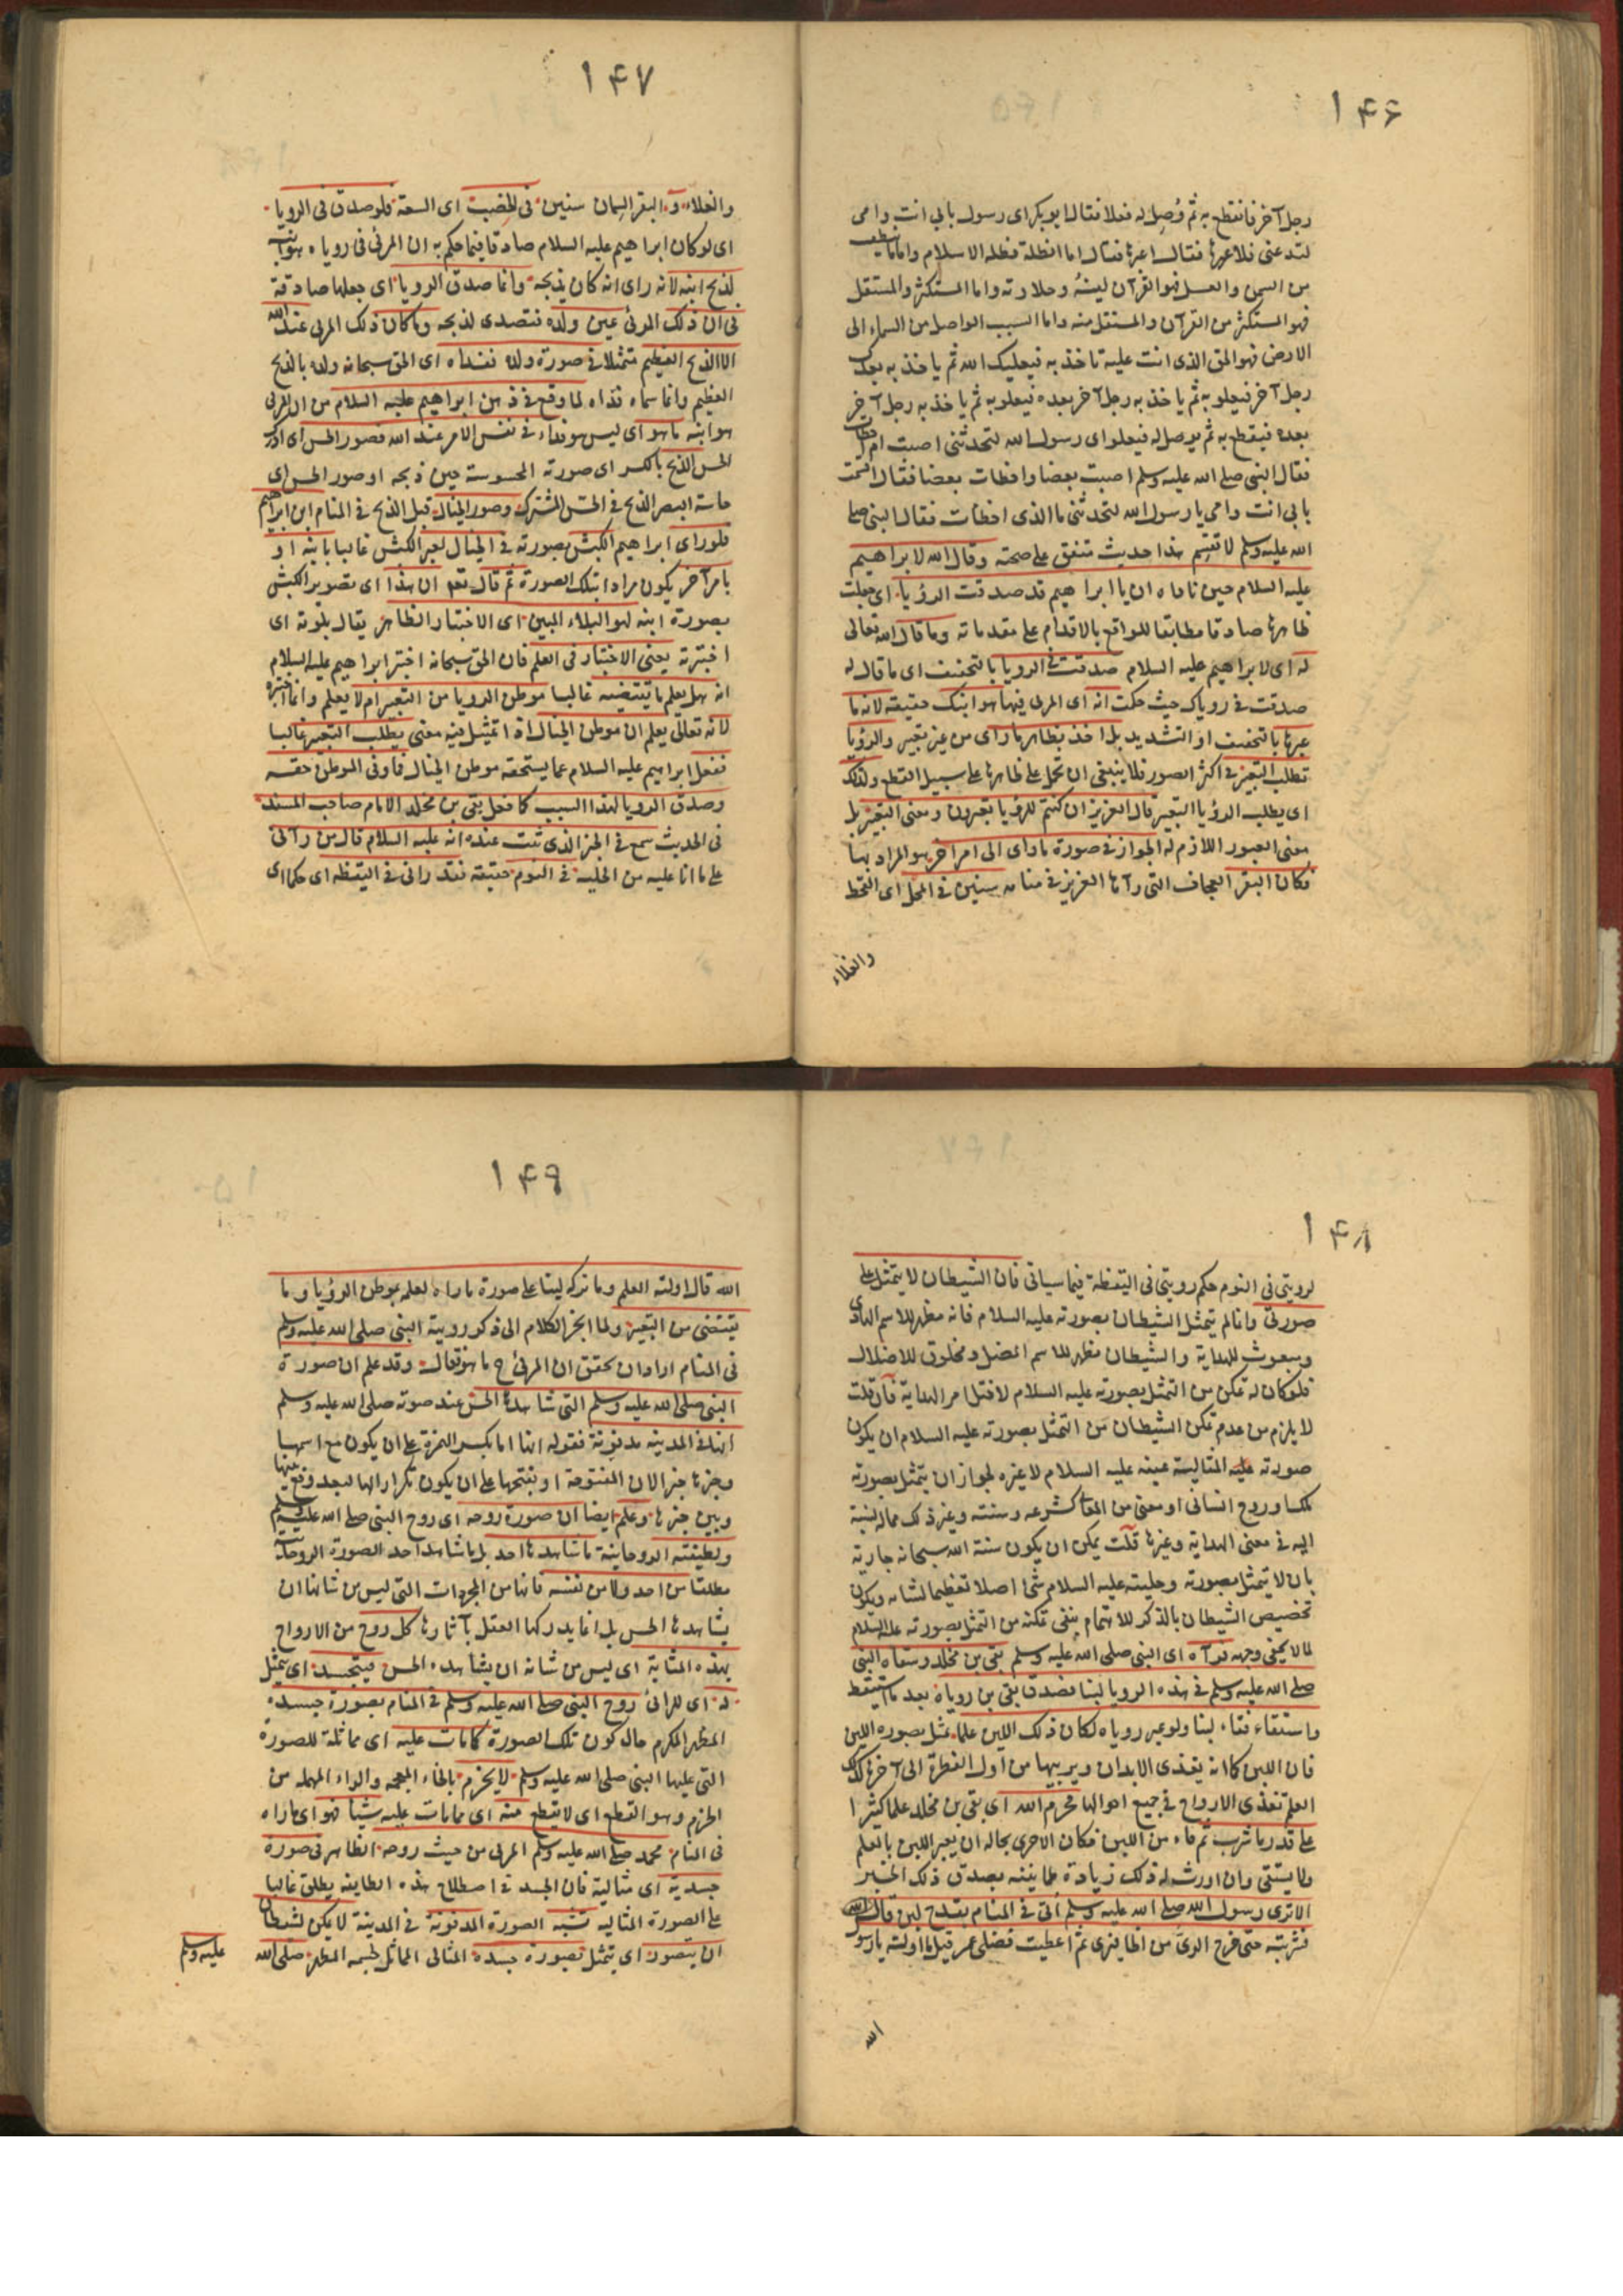 ۱۴۶
رجل آخر فانقطع به ثم وُصِل له فعلا فقال ابوبكر اى رسول بابى انت وامى
لتدعنى فلاعبرها فقال اعبرها فقال اما الظلة فظلة الاسلام واما ما ينطف
من السمن والعسل فهو القرآن لينُهُ وحلاوته واما المستكثر والمستقل
فهو المستكثر من القرآن والمستقل منه واما السبب الواصل من السماء الى
الارض فهو الحق الذى انت عليه تاخذ به فيعليك الله ثم ياخذ به بعدك
رجل آخر فيعلو به ثم ياخذ به رجل آخر بعده فيعلو به ثم ياخذ به رجل آخر
بعده فيقطع به ثم يوصل له فيعلو اى رسول الله لتحدثنى اصبت ام اخطات
فقال النبى صلى الله عليه وسلم اصبت بعضا واخطات بعضا فقال اقسمت
بابى انت وامى يا رسول الله لتحدثنى ما الذى اخطات فقال النبى صلى
الله عليه وسلم لا تقسم هذا حديث متفق على صحته وقال الله لابراهيم
عليه السلام حين ناداه ان يا ابراهيم قد صدقت الرؤيا اى جعلت
ظاهرها صادقا مطابقا للواقع بالاقدام على مقدماته وما قال الله تعالى
له اى لابراهيم عليه السلام صدقت فى الرويا بالتخفيف اى ما قال له
صدقت فى روياك حيث حكمت انه اى المرئى فيها هو ابنك حقيقة لانه ما
عبرها بالتخفيف او التشديد بل اخذ بظاهر ما راى من غير تعبير والرؤيا
تطلب التعبير فى اكثر الصور فلا ينبغى ان تحمل على ظاهرها على سبيل القطع ولذلك
اى يطلب الرؤيا التعبير قال العزيز ان كنتم للرؤيا تعبرون ومعنى التعبير بل
معنى العبور اللازم له الجواز فى صورة ما راى الى امر آخر هو المراد بها
فكان البقر العجاف التى رآها العزيز فى منامه سنين فى المحل اى القحط
والغلاء
۱۴۷
والغلاء و البقر السمان سنين فى الخصب اى السعة فلو صدق فى الرويا
اى لو كان ابراهيم عليه السلام صادقا فيما حكم به ان المرئى فى روياه هو ابنه
لذبح ابنه لانه راى انه كان يذبحه وانما صدق الرويا اى جعلها صادقة
فى ان ذلك المرئى عين ولده فتصدى لذبحه وما كان ذلك المرئى عند الله
الا الذبح العظيم متمثلا فى صورة ولده ففداه اى الحق سبحانه ولده بالذبح
العظيم وانما سماه فداه لما وقع فى ذهن ابراهيم عليه السلام من ان المرئى
هو ابنه ما هو اى ليس هو فداء فى نفس الامر عند الله فصور الحس اى ادرك
الحس الذبح بالكسر اى صورته المحسوسة حين ذبحه او صور الحس اى
حاسة البصر الذبح فى الحس المشترك وصور الخيال قبل الذبح فى المنام ابن ابراهيم
فلو راى ابراهيم الكبش بصورته فى الخيال لعبر الكبش غالبا بابنه او
بامر آخر يكون مرادا بتلك الصورة ثم قال تعم ان هذا اى تصوير الكبش
بصورة ابنه لهو البلاء المبين اى الاختبار الظاهر يقال بلوته اى
اختبرته يعنى الاختبار فى العلم فان الحق سبحانه اختبر ابراهيم عليه السلام
انه هل يعلم ما تقتضيه غالبا موطن الرويا من التعبير ام لا يعلم وانما اختبره
لانه تعالى يعلم ان موطن الخيال اذا تمثل فيه معنى يطلب التعبير غالبا
فغفل ابراهيم عليه السلام عما يستحقه موطن الخيال فما وفى الموطن حقه
وصدق الرويا لهذا السبب كما فعل بقى بن مخلد الامام صاحب المسند
فى الحديث سمع فى الخبر الذى ثبت عنده انه عليه السلام قال من رآنى
على ما انا عليه من الحلية فى النوم حقيقة فقد رانى فى اليقظه اى حكم اى
۱۴۸
لرويتى فى النوم حكم رويتى فى اليقظة فيما سياتى فان الشيطان لا يتمثل على
صورتى وانما لم يتمثل الشيطان بصورته عليه السلام فانه مظهر للاسم الهادى
ومبعوث للهداية والشيطان مظهر للاسم المضل ومخلوق للاضلال
فلو كان له تمكن من التمثل بصورته عليه السلام لاختل امر الهداية فان قلت
لا يلزم من عدم تمكن الشيطان من التمثل بصورته عليه السلام ان يكون
صورته عليه المثالية عينه عليه السلام لا غيره لجواز ان يتمثل بصورته
ملك او روح انسانى او معنى من المعانى كشرعه وسنته وغير ذلك مما له نسبة
اليه فى معنى الهداية وغيرها قلت يمكن ان يكون سنة الله سبحانه جارية
بان لا يتمثل بصورته وحليته عليه السلام شئ اصلا تعظيما لشانه ويكون
تخصيص الشيطان بالذكر للاهتمام بنفى تمكنه من التمثل بصورته عليه السلام
لما لا يخفى وجهه فرآه اى النبى صلى الله عليه وسلم بقى بن مخلد وسقاه النبى
صلى الله عليه وسلم فى هذه الرويا لبنا فصدق بقى بن روياه بعد ما استيقظ
واستقاء فقاء لبنا ولو عبر روياه لكان ذلك اللبن علما تمثل بصورة اللبن
فان اللبن كما انه يغذى الابدان ويربيها من اول الفطرة الى آخرها كذلك
العلم يغذى الارواح فى جميع احوالها فحرمه الله اى بقى بن مخلد علما كثيرا
على قدر ما شرب ثم قاء من اللبن فكان الاحرى بحاله ان يعبر اللبن بالعلم
ولا يستقى وان اورثه ذلك زيادة طمانينة بصدق ذلك الخبر
الا ترى رسول الله صلى الله عليه وسلم أتى فى المنام بقدح لبن قال
فشربته حتى خرج الرى من اظافيرى ثم اعطيت فضلى عمر قيل ما اولته يا رسول
الله
۱۴۹
الله قال اولته العلم وما تركه لبنا على صورة ما راه لعلمه بموطن الرؤيا وما
يقتضى من التعبير ولما انجر الكلام الى ذكر روية النبى صلى الله عليه وسلم
فى المنام اراد ان يحقق ان المرئى ح ما هو فقال وقد علم ان صورة
النبى صلى الله عليه وسلم التى شاهدها الحس عند موته صلى الله عليه وسلم
انها فى المدينه مدفونة فقوله انها اما بكسر الهمزة على ان يكون مع اسمها
وخبرها خبر الان المفتوحة او بفتحها على ان يكون تكرارا لها لبعد وقع بينها
وبين خبرها وعلم ايضا ان صورة روحه اى روح النبى صلى الله عليه وسلم
ولطيفته الروحانية ما شاهدها احد بل ما شاهد احد الصورة الروحانية
مطلقا من احد ولا من نفسه فانها من المجردات التى ليس من شانها ان
يشاهدها الحس بل انما يدركها العقل بآثارها كل روح من الارواح
بهذه المثابة اى ليس من شانه ان يشاهده الحس فيتجسد اى يتمثل
له اى للرائى روح النبى صلى الله عليه وسلم فى المنام بصورة جسده
المطهر المكرم حال كون تلك الصورة كما مات عليه اى مماثلة للصورة
التى عليها النبى صلى الله عليه وسلم لا يخرم بالخاء المعجمه والراء المهمله من
الخرم وهو القطع اى لا يقطع منه اى مما مات عليه شيئا فهو اى ما راه
فى المنام محمد صلى الله عليه وسلم المرئى من حيث روحه الظاهر فى صورة
جسدية اى مثالية فان الجسد فى اصطلاح هذه الطايفه يطلق غالبا
على الصورة المثاليه تشبه الصورة المدفونة فى المدينة لا يمكن لشيطان
ان يتصور اى يتمثل بصورة جسده المثالى المماثل لجسمه المطهر صلى الله
عليه وسلم